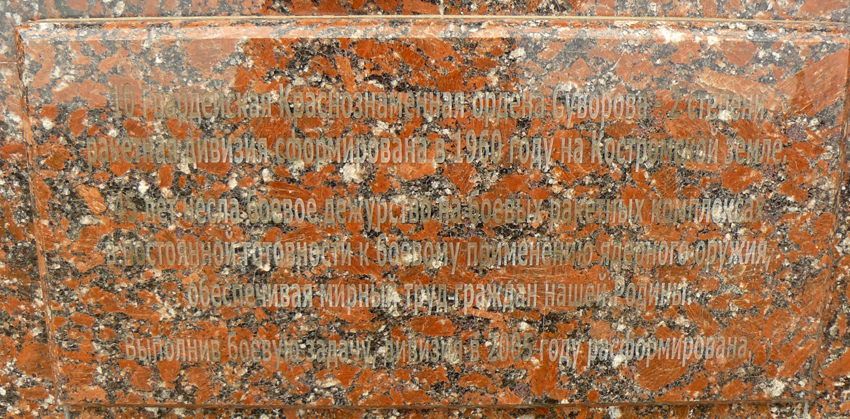 10 гвардейская Краснознаменная ордена Суворова 2 степени
ракетная дивизия сформирована в 1960 году на Костромской земле.
45 лет несла боевое дежурство на боевых ракетных комплексах
в постоянной готовности к боевому применению ядерного оружия,
обеспечивая мирный труд граждан нашей Родины.
Выполнив боевую задачу, дивизия в 2005 году расформирована.